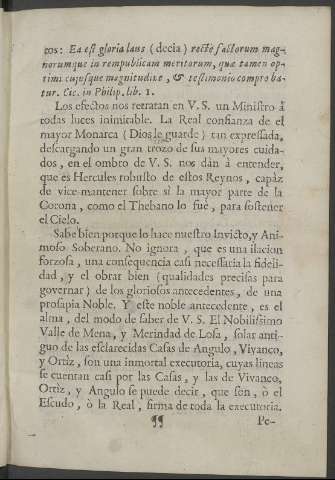 tos: Ea est gloria laus (decia) rectè factorum mag-
norumque in rempublicam meritorum, quæ tamen op-
timi cujusque magnitudine, & testimonio comproba-
tur. Cic. in Philip. lib. 1.
Los efectos nos retratan en V. S. un Ministro à
todas luces inimitable. La Real confianza de el
mayor Monarca (Dios le guarde) tan expressada,
descargando un gran trozo de sus mayores cuida-
dos, en el ombro de V. S. nos dàn à entender,
que es Hercules robusto de estos Reynos, capàz
de vice-mantener sobre sì la mayor parte de la
Corona, como el Thebano lo fuè, para sostener
el Cielo.
Sabe bien porque lo hace nuestro Invicto, y Ani-
moso Soberano. No ignora, que es una ilacion
forzosa, una consequencia casi necessaria la fideli-
dad, y el obrar bien (qualidades precisas para
governar) de los gloriosos antecedentes, de una
prosapia Noble. Y este noble antecedente, es el
alma, del modo de saber de V. S. El Nobilissimo
Valle de Mena, y Merindad de Losa, solar anti-
guo de las esclarecidas Casas de Angulo, Vivanco,
y Ortiz, son una inmortal executoria, cuyas lineas
se cuentan casi por las Casas, y las de Vivanco,
Ortiz, y Angulo se puede decir, que son, ò el
Escudo, ò la Real, firma de toda la executoria.
¶¶ Pe-